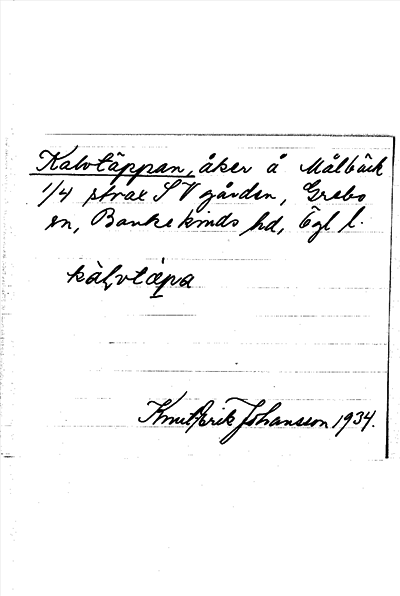 Kalvtäppan, åker å Målbäck
1/4 strax SV gården, Grebo
sn, Bankekinds hd, Ögl l.
kàlvtæpa
Knut Erik Johansson 1934.